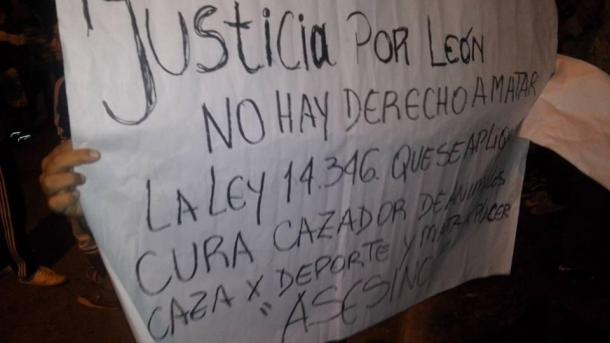 Justicia Por León
NO HAY DERECHO A MATAR
LA LEY 14.346. QUE SE APLIQU
CURA CAZADOR DE ANIMALES
CAZA X DEPORTE Y MATA X PLACER
"ASESINO